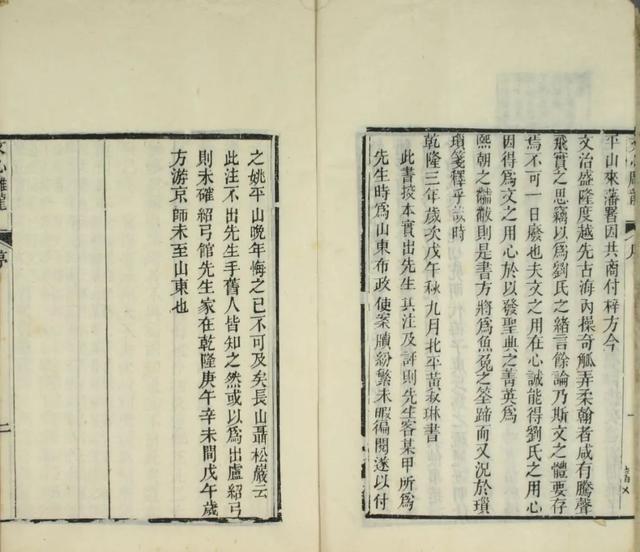 平山來藩署因共商付梓方今
文治盛隆度越先古海內操奇觚弄柔翰者咸有騰聲
飛實之思竊以為劉氏之緒言餘論乃斯文之體要存
焉不可一日廢也夫文之用在心誠能得劉氏之用心
因得為文之用心於以發聖典之菁英為
熙朝之黼黻則是書方將為魚兔之筌蹄而又況於瑣
瑣箋釋乎哉時
乾隆三年歲次戊午秋九月北平黃叔琳書
此書挍本實出先生其注及評則先生客某甲所為
先生時為山東布政使案牘紛繁未暇徧閱遂以付
之姚平山晚年悔之已不可及矣長山聶松巖云
此注不出先生手舊人皆知之然或以為出盧紹弓
則未確紹弓館先生家在乾隆庚午辛未間戊午歲
方游京師未至山東也
文心雕龍
序
二